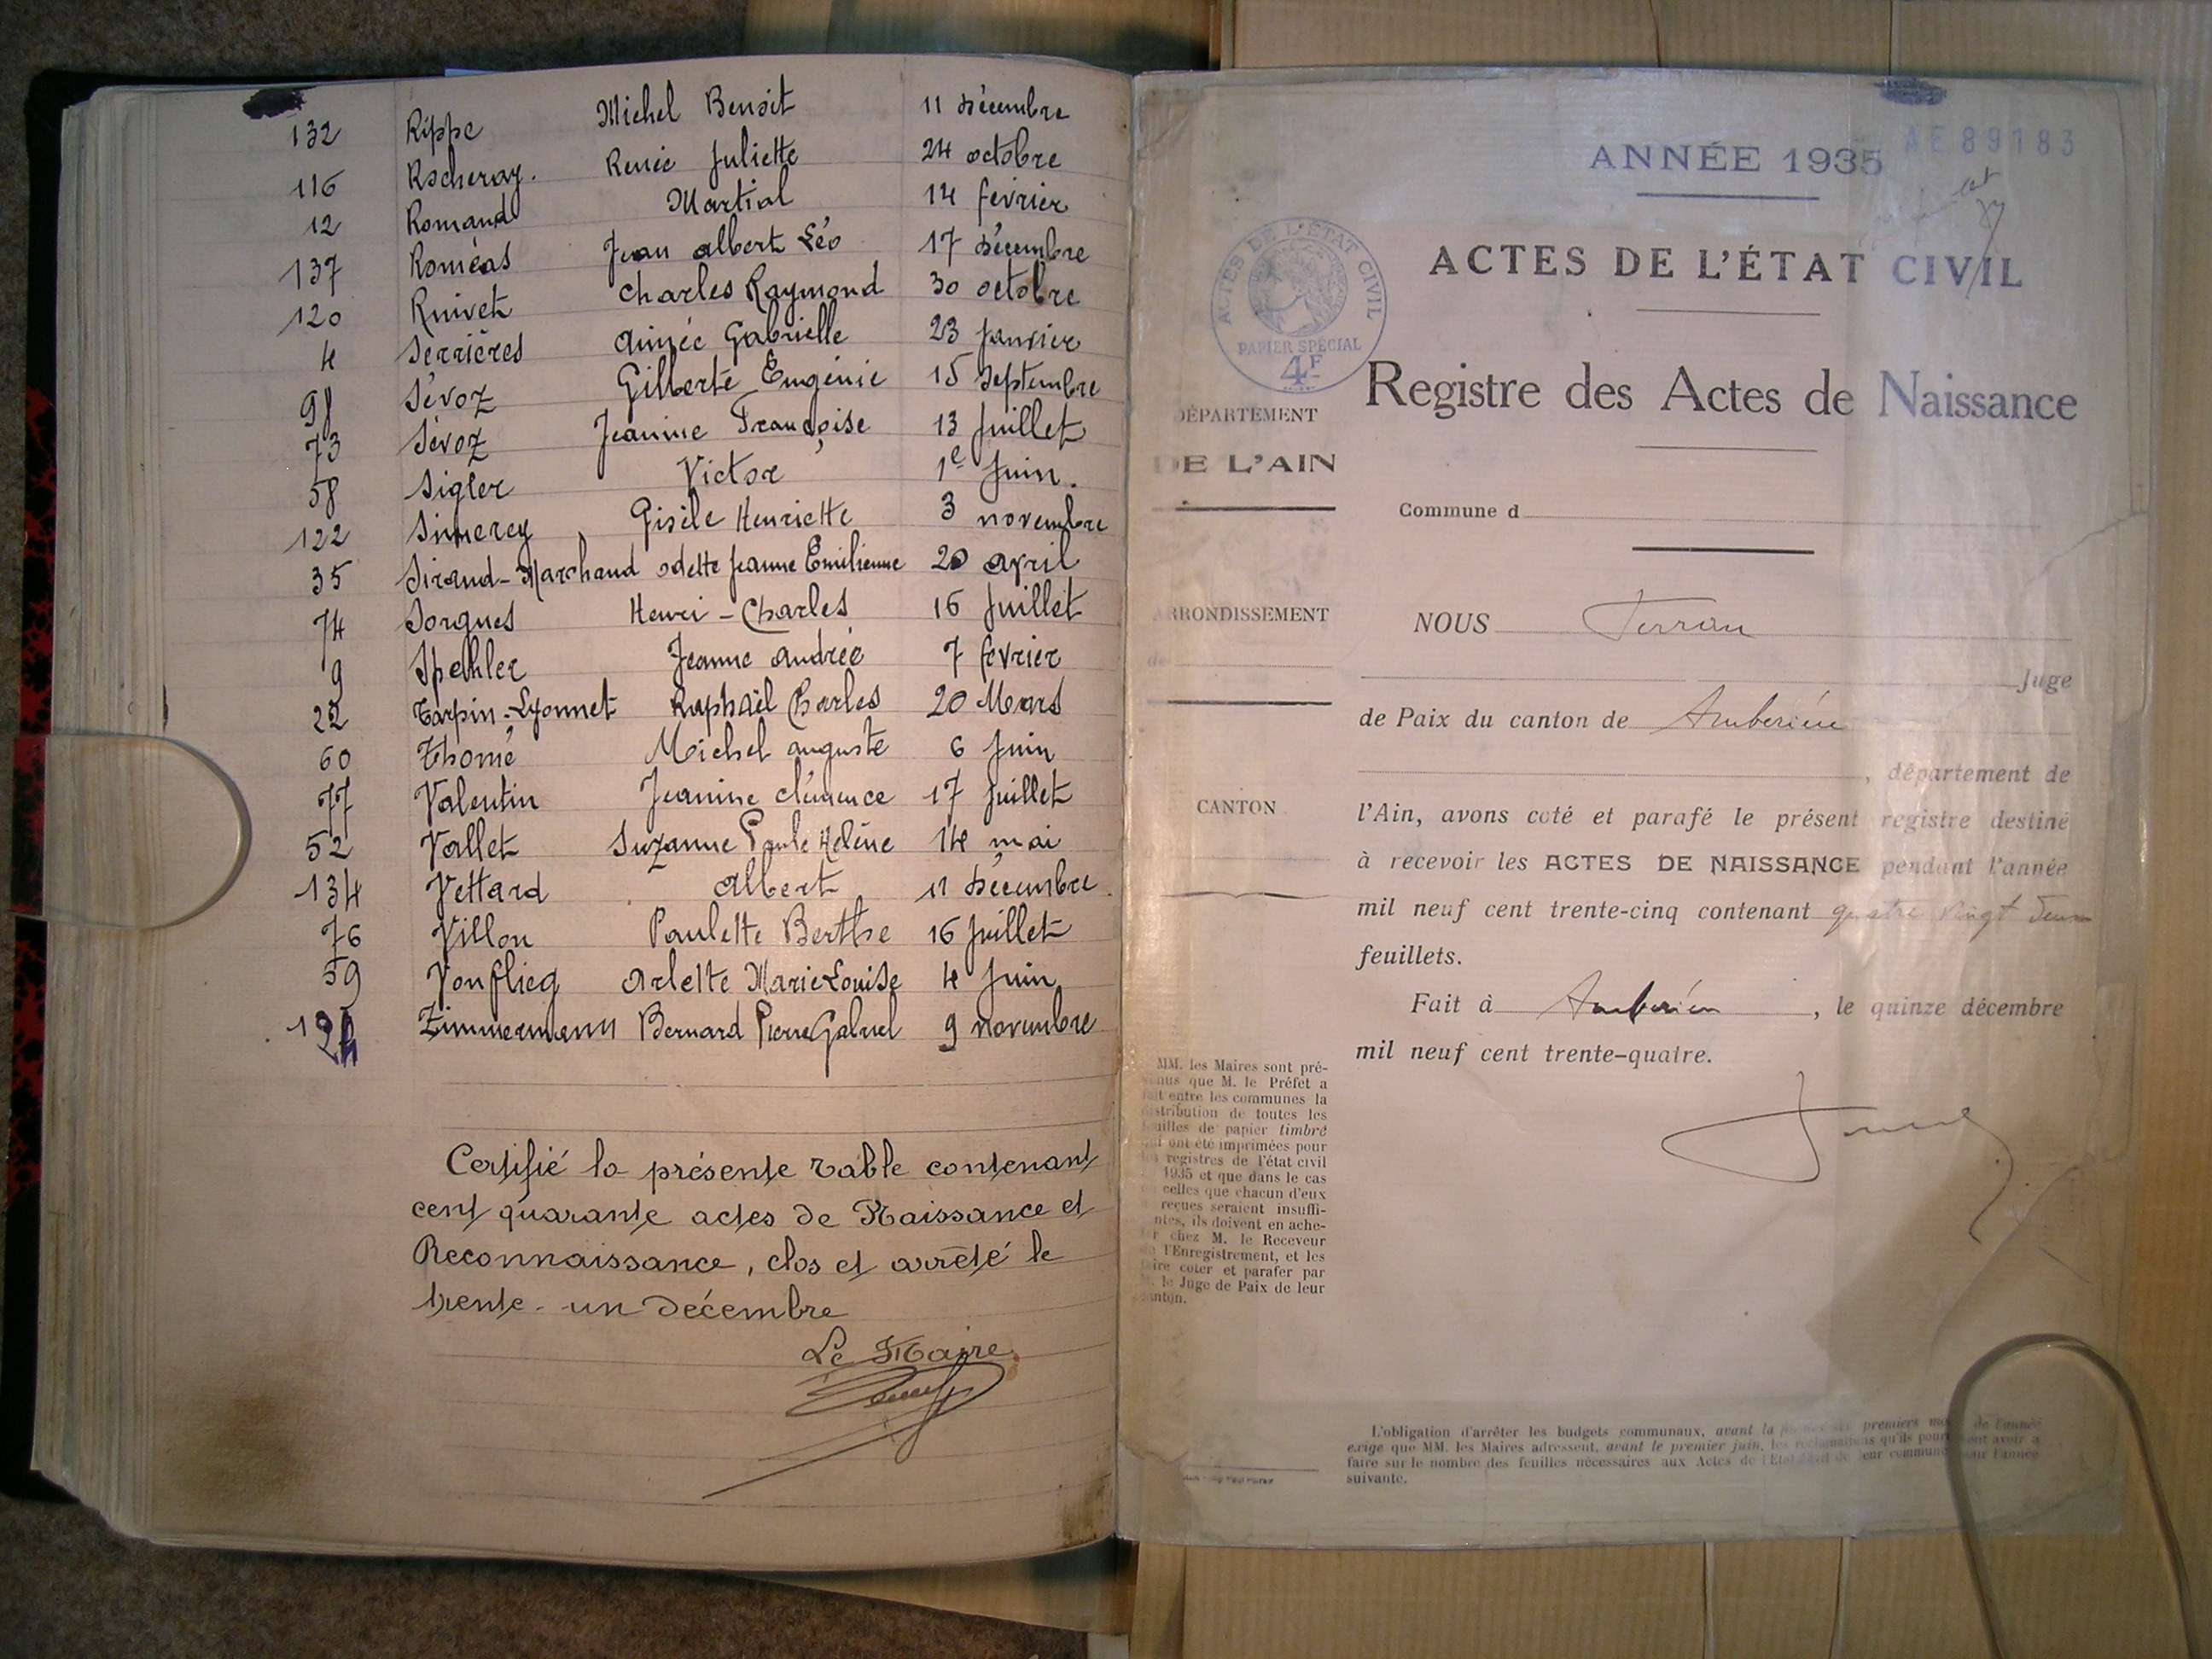 132 Rippe Michel Benoit 11 décembre
116 Rocheray. Renée Juliette 24 octobre
12 Romand Martial 14 février
137 Roméas Jean albert Léo 17 décembre
120 Ruivet Charles Raymond 30 octobre
4 Serrières aimée Gabrielle 23 Janvier
98 Sévoz Gilberte Eugénie 15 Septembre
73 Sévoz Jeanine Françoise 13 Juillet
58 Sigler Victor 1e Juin.
122 Simerey Gisèle Henriette 3 novembre
35 Sirand-Marchand odette Jeanne Emilienne 20 avril
74 Sorgues Henri-Charles 16 Juillet
9 Spehler Jeanne andrée 7 février
22 Tarpin-Lyonnet Raphaël Charles 20 Mars
60 Thomé Michel auguste 6 Juin
77 Valentin Jeanine clémence 17 Juillet
52 Vallet Suzanne Paule Hélène 14 mai
134 Vettard albert 11 décembre
76 Villon Paulette Berthe 16 Juillet
59 Vonflieg arlette Marie Louise 4 Juin
124 Zimmermann Bernard Pierre Gabriel 9 novembre
Certifié la présente table contenant
cent quarante actes de Naissance et
Reconnaissance, clos et arrêté le
trente-un décembre
Le Maire
AE 89183
ANNÉE 1935
ACTES DE L'ÉTAT CIVIL
ACTES DE L'ÉTAT CIVIL
PAPIER SPÉCIAL
4F
Registre des Actes de Naissance
DÉPARTEMENT
DE L'AIN
Commune d
ARRONDISSEMENT
de
CANTON
NOUS Ferran
Juge
de Paix du canton de Ambérieu
, département de
l'Ain, avons coté et parafé le présent registre destiné
à recevoir les ACTES DE NAISSANCE pendant l'année
mil neuf cent trente-cinq contenant quatre vingt deux
feuillets.
Fait à Ambérieu, le quinze décembre
mil neuf cent trente-quatre.
MM. les Maires sont pré-
venus que M. le Préfet a
fait entre les communes la
distribution de toutes les
feuilles de papier timbré
qui ont été imprimées pour
les registres de l'état civil
1935 et que dans le cas
où celles que chacun d'eux
a reçues seraient insuffi-
santes, ils doivent en ache-
ter chez M. le Receveur
de l'Enregistrement, et les
faire coter et parafer par
M. le Juge de Paix de leur
canton.
L'obligation d'arrêter les budgets communaux, avant la premiers mois de l'année
exige que MM. les Maires adressent, avant le premier juin, les réclamations qu'ils pourraient avoir à
faire sur le nombre des feuilles nécessaires aux Actes de l'Etat civil de leur commune pour l'année
suivante.